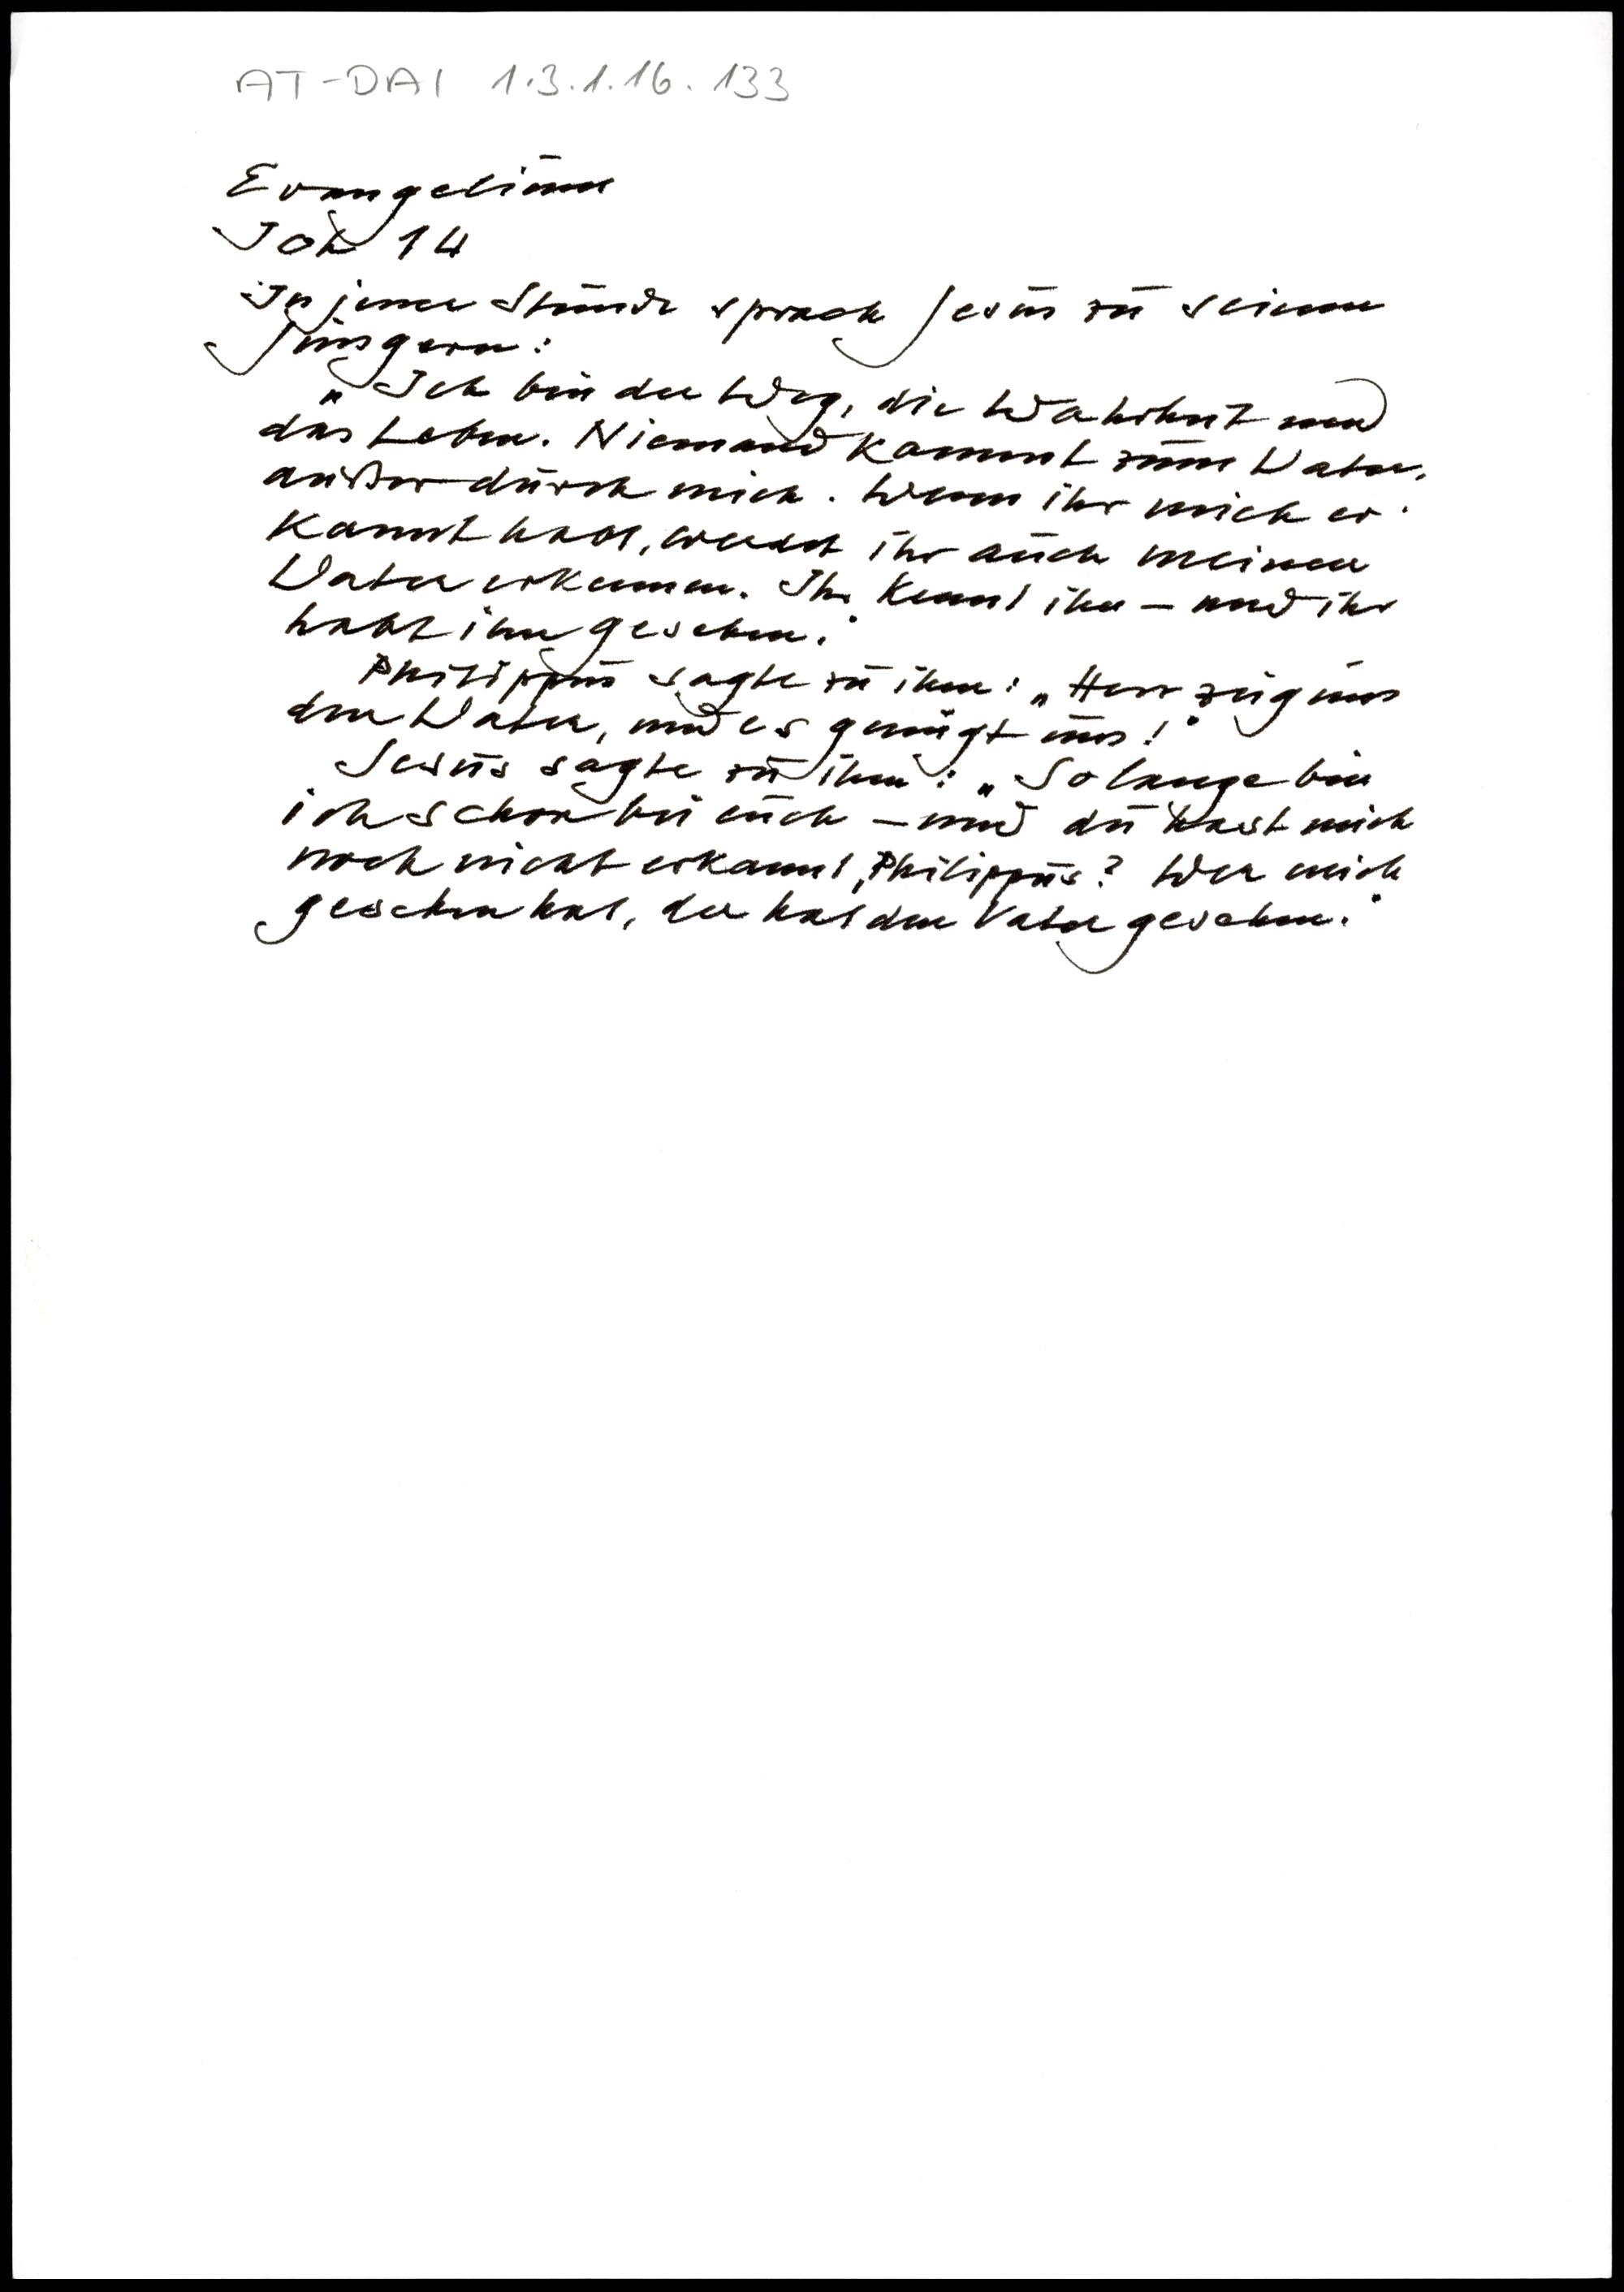 AT-DAI 1.3.1.16.133
Evangelium
Joh 14
In jener Stunde sprach Jesus zu seinen
Jüngern:
„Ich bin der Weg, die Wahrheit und
das Leben. Niemand kommt zum Vater,
außer durch mich. Wenn ihr mich er-
kannt habt, werdet ihr auch meinen
Vater erkennen. Ihr kennt ihn – und ihr
habt ihn gesehen."
Philippus sagte zu ihm: „Herr zeig uns
den Vater, und es genügt uns!"
Jesus sagte zu ihm: „So lange bin
ich schon bei euch – und du hast mich
noch nicht erkannt, Philippus? Wer mich
gesehen hat, der hat den Vater gesehen."